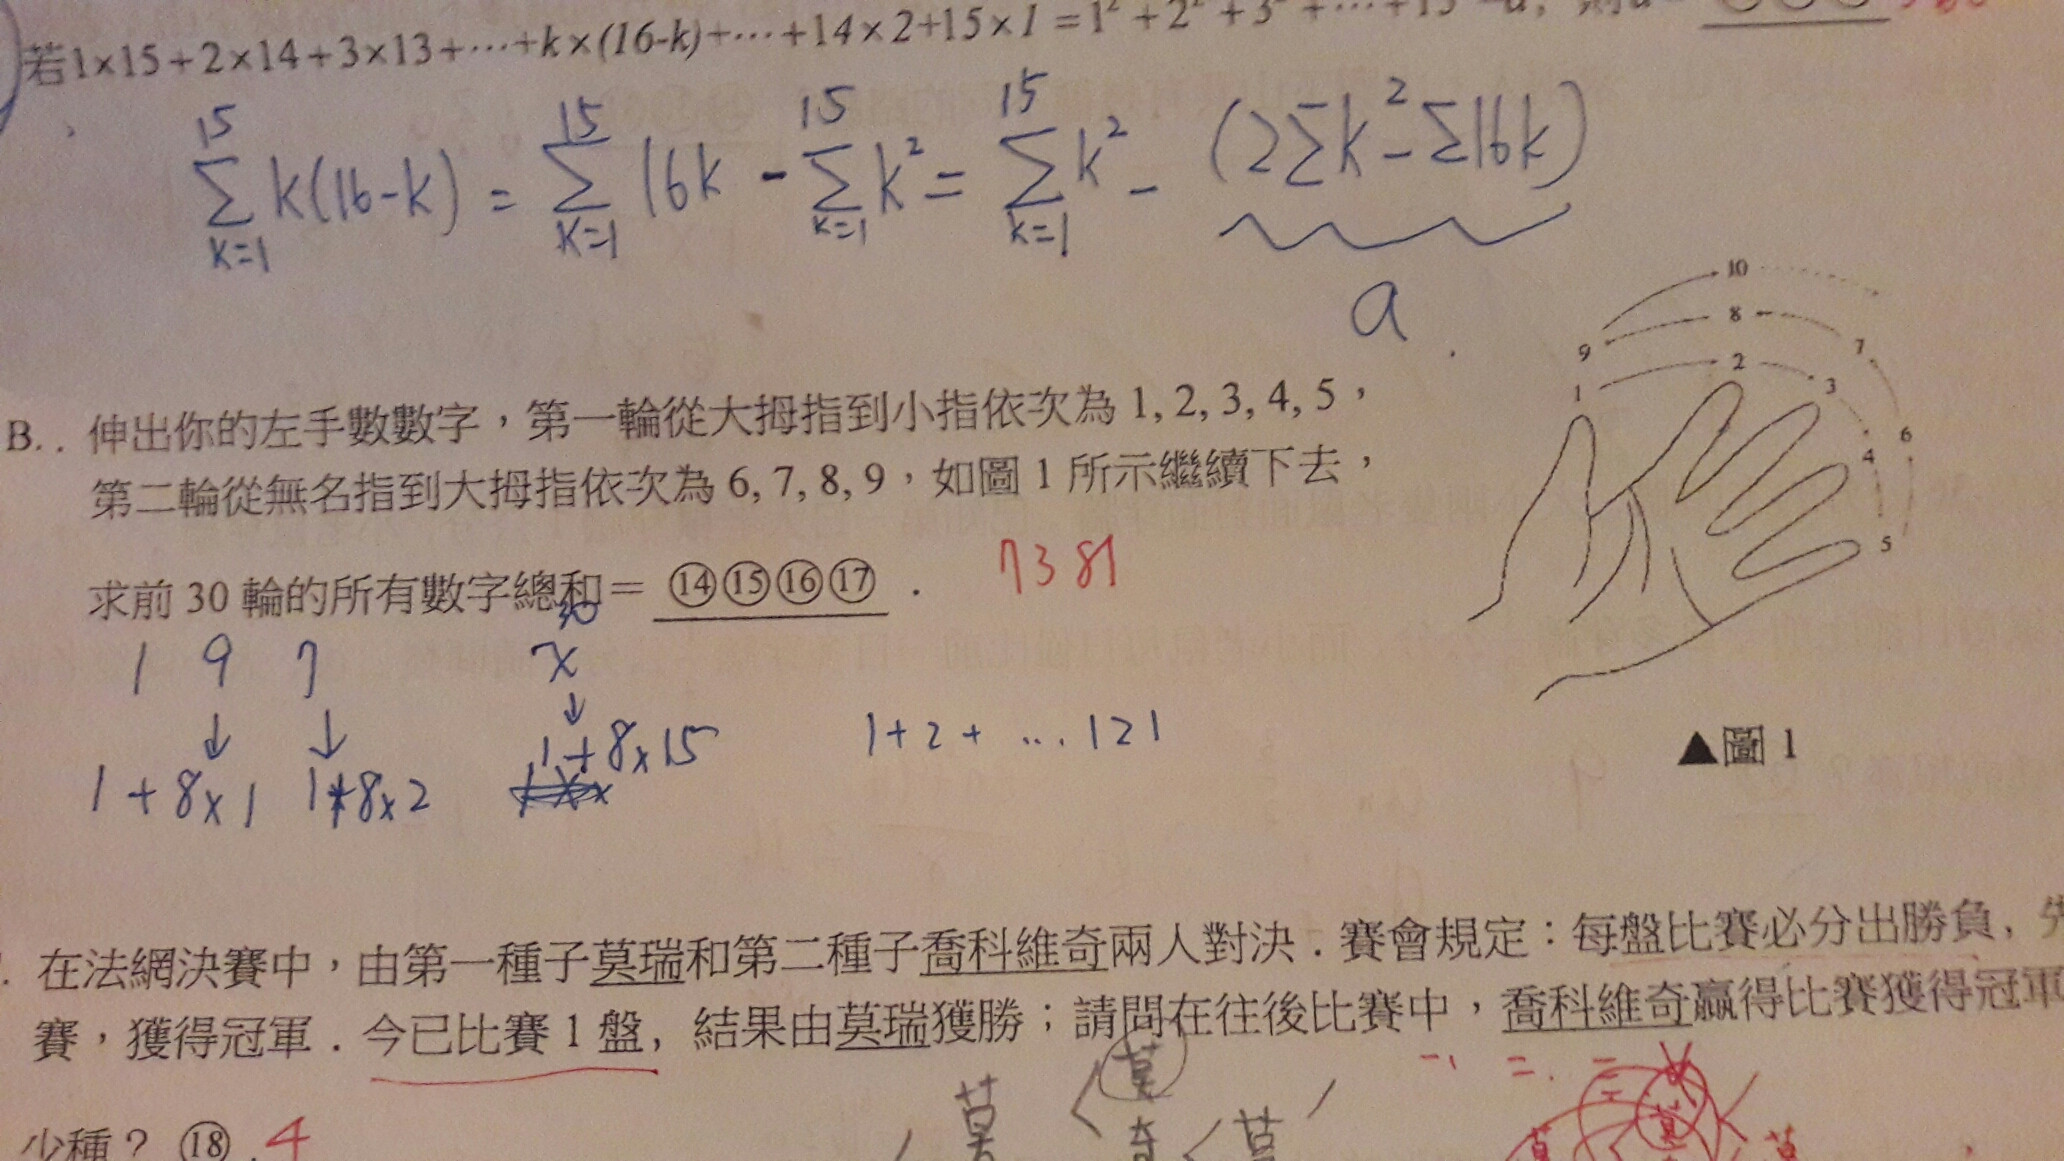 若1×15+2×14+3×13+⋯+k×(16-k)+⋯+14×2+15×1=1²+2²+3²+⋯+15²
15 15 15 15
∑ k(16-k) = ∑ 16k - ∑ k² = ∑ k² - (2∑k² - ∑16k)
k=1 k=1 k=1 k=1
a
B. . 伸出你的左手數數字，第一輪從大拇指到小指依次為 1, 2, 3, 4, 5，
第二輪從無名指到大拇指依次為 6, 7, 8, 9，如圖 1 所示繼續下去，
求前 30 輪的所有數字總和＝ ⑭⑮⑯⑰ . 7381
10
8
9 7
2
1 3
6
4
5
▲圖 1
30
1 9 7 x
↓ ↓ ↓
1+8×1 1+8×2 1+8×15 1+2+ ... 121
. 在法網決賽中，由第一種子莫瑞和第二種子喬科維奇兩人對決．賽會規定：每盤比賽必分出勝負，先
賽，獲得冠軍．今已比賽 1 盤，結果由莫瑞獲勝；請問在往後比賽中，喬科維奇贏得比賽獲得冠軍
少種？ ⑱ . 4
莫 莫 奇 莫